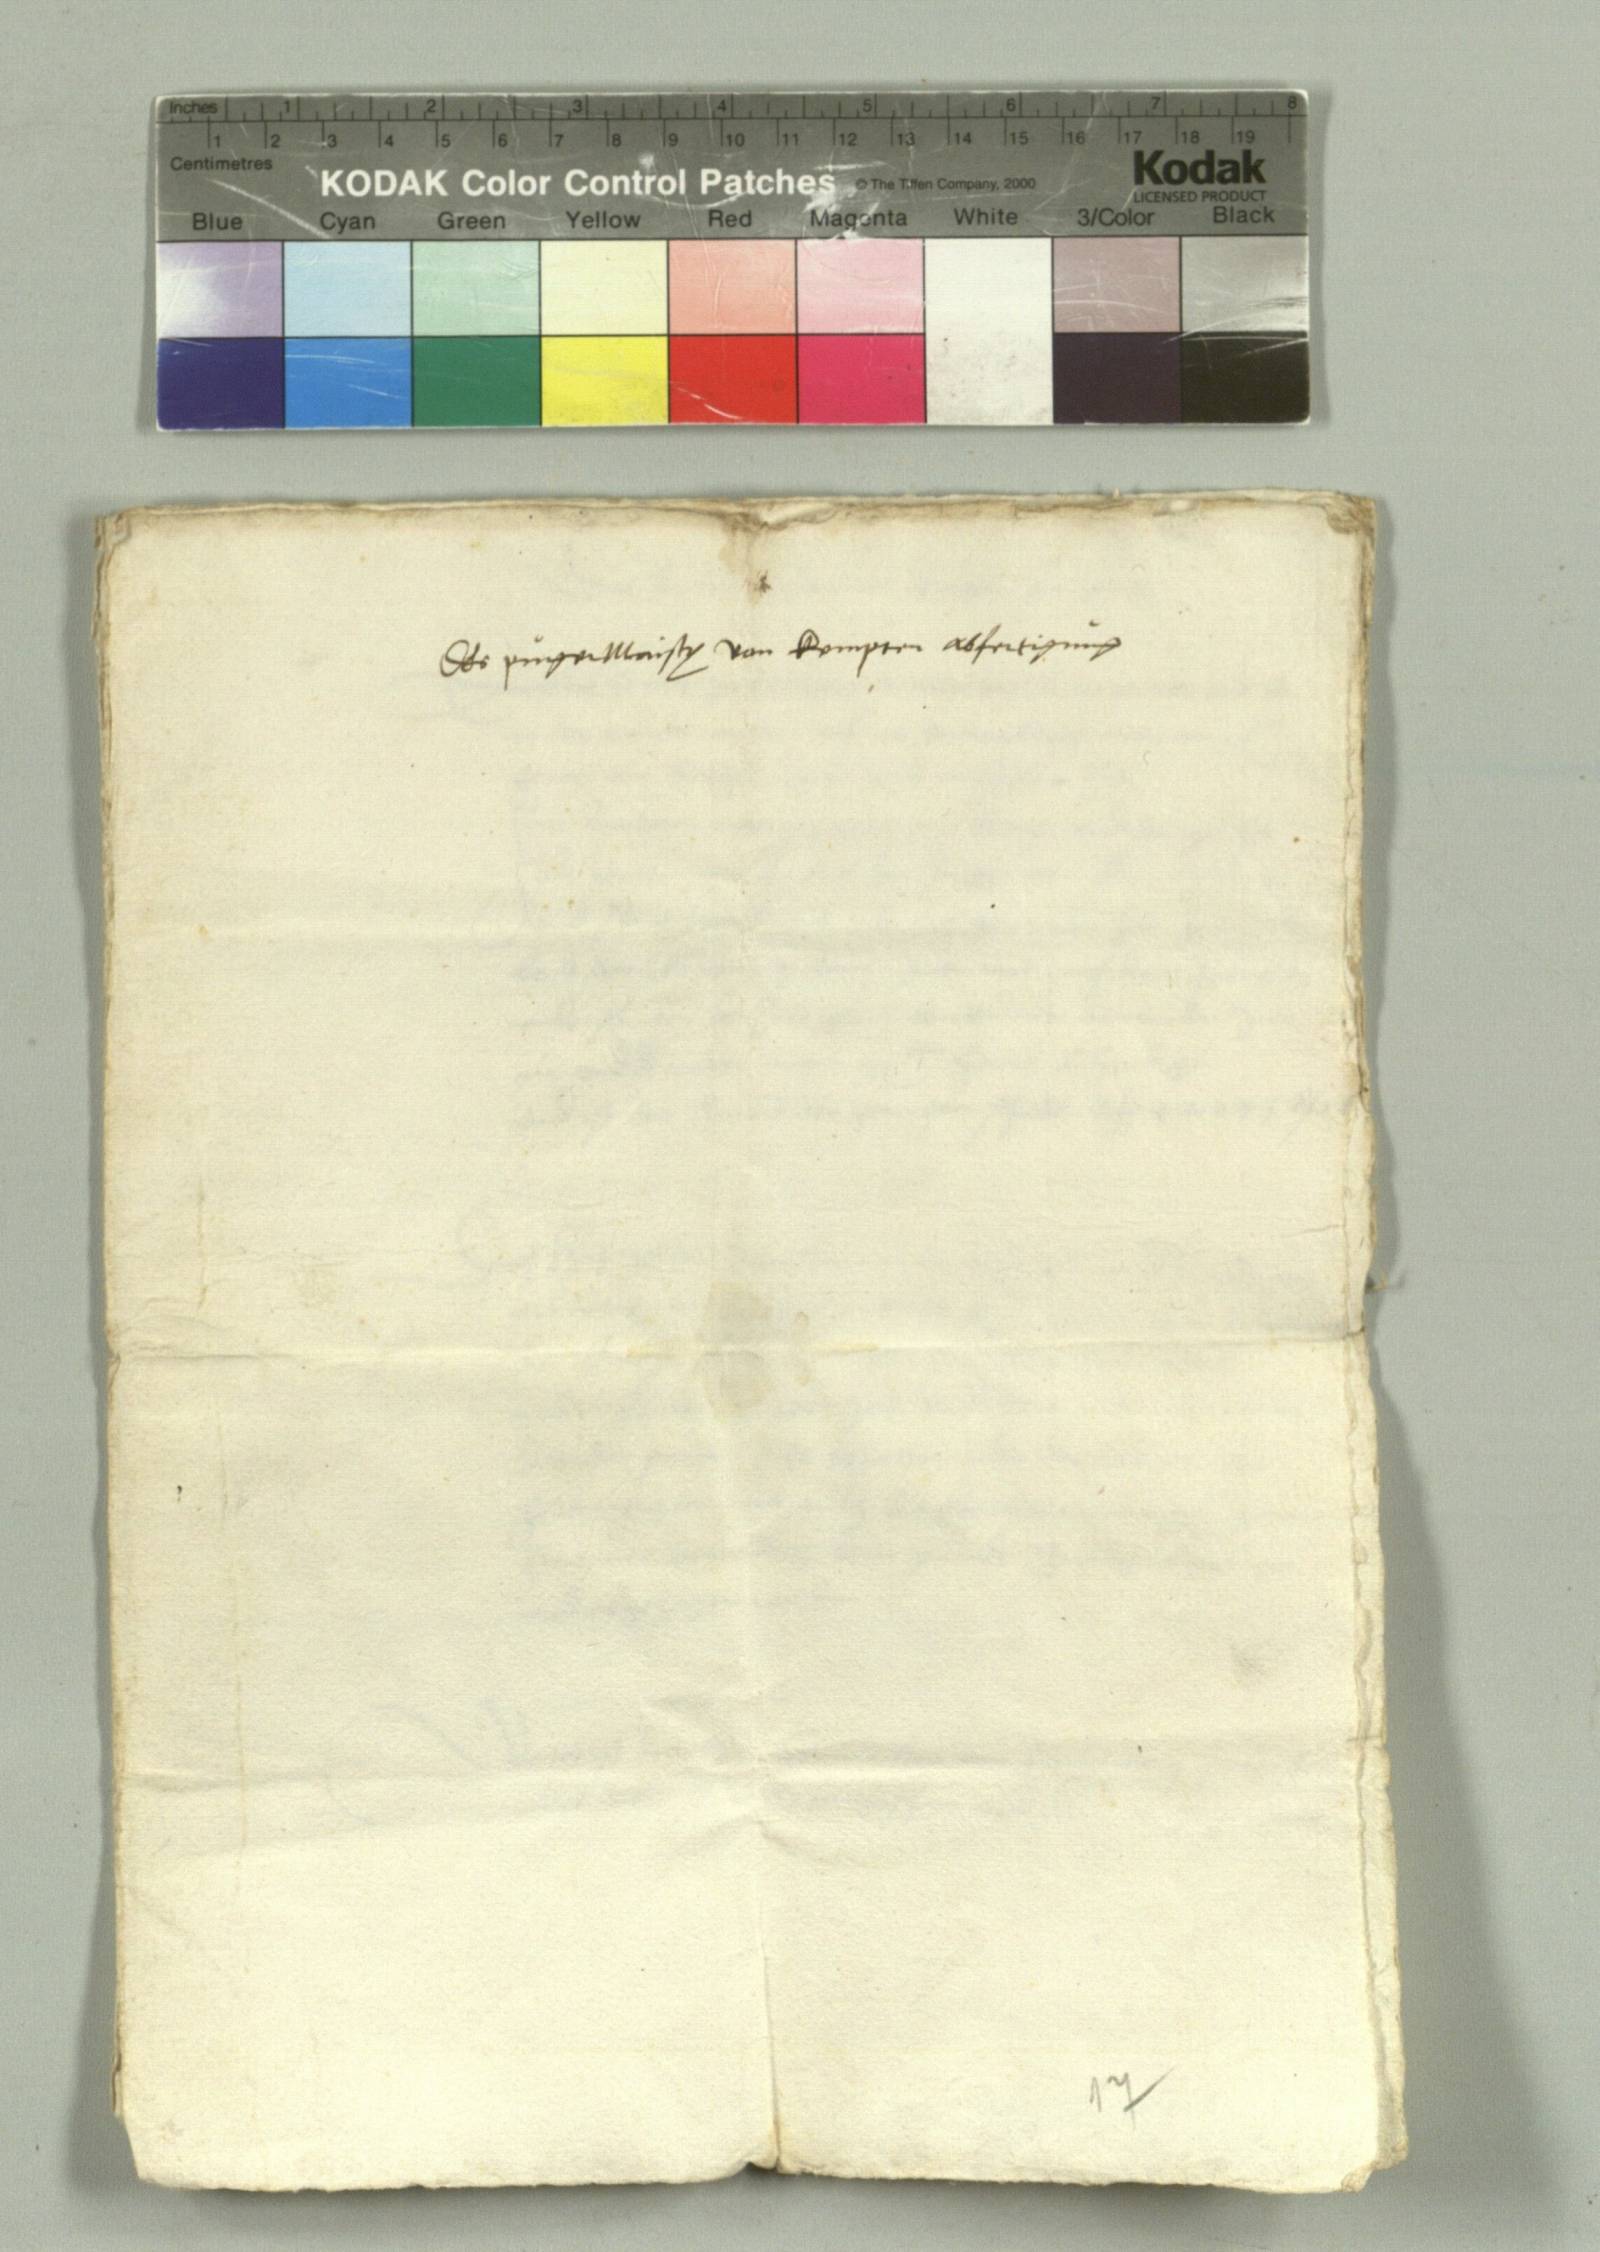 Inches 1 2 3 4 5 6 7 8
1 2 3 4 5 6 7 8 9 10 11 12 13 14 15 16 17 18 19
Centimetres
KODAK Color Control Patches © The Tiffen Company, 2000 Kodak
LICENSED PRODUCT
Blue Cyan Green Yellow Red Magenta White 3/Color Black
Des purgermaisters von Kempten abfertigung
17